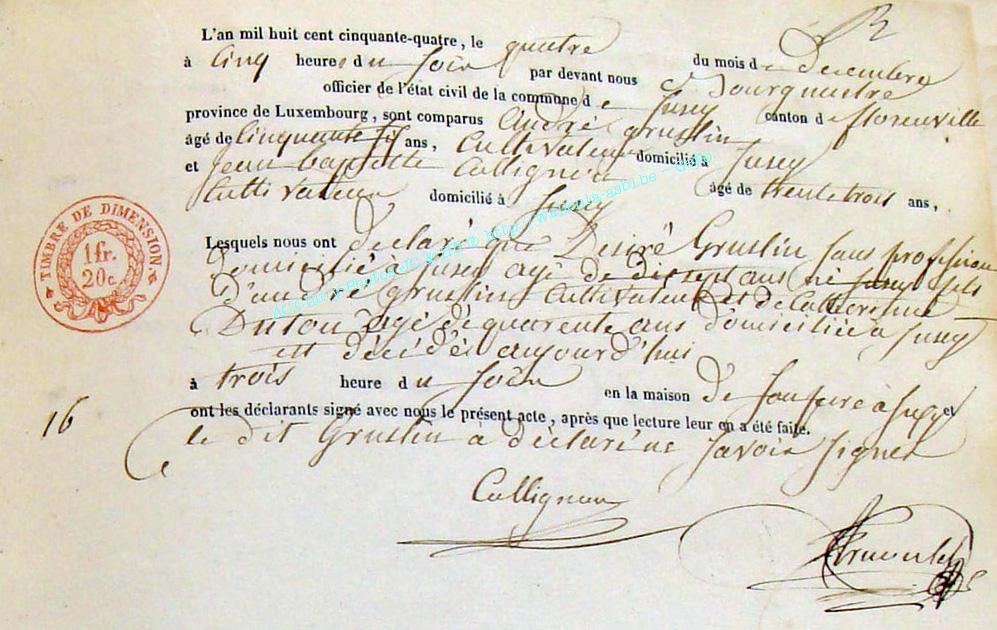 L'an mil huit cent cinquante-quatre, le quatre du mois de Decembre
à Cinq heures du Soir par devant nous Bourguestre
officier de l'état civil de la commune de Jusey canton de florenville
province de Luxembourg, sont comparus André Gruslin
âgé de Cinquante Six ans, Cultivateur domicilié à Jusey
et Jean baptiste Collignon âgé de trente trois ans,
Cultivateur domicilié à Jusey
Lesquels nous ont déclaré que Desiré Gruslin sans profession
domicilié à Jusey agé de dix sept ans né Jusey fils
d'andré gruslin Cultivateur et de Catherine
Duton agé de quarente ans domiciliée à Jusey
est décédé aujourd'hui
à trois heure du Soir en la maison de son pere à Jusey et
ont les déclarants signé avec nous le présent acte, après que lecture leur en a été faite.
le dit Gruslin à déclaré ne savoir signer
Collignon
16
TIMBRE DE DIMENSION
1fr.
20c.